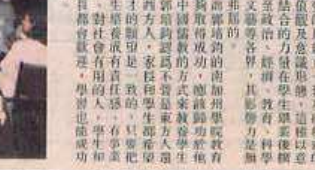 值觀及意識形態，這種以意
結合的力量在學生畢業後擴
至政治、經濟、教育、科學
文藝等各界，其影響力是無
弗屆的。
鄧培鈞的南加州學院教育
夠取得成功，應該歸功於他
中國儒教的方式來教養學生
鄧培鈞認爲不管是東方人還
西方人，家長和學生都希望
才的願望是一致的，只要把
生榮養成有責任感、有事業
、對社會有用的人，學生和
長都會歡迎，學習也能成功